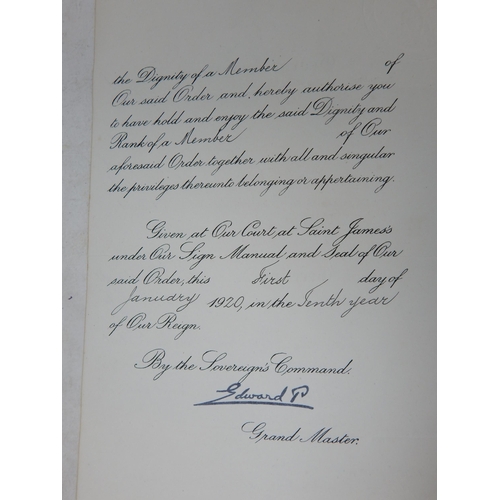 the Dignity of a Member of
Our said Order and, hereby authorise you
to have hold and enjoy the said Dignity and
Rank of a Member of Our
aforesaid Order together with all and singular
the privileges thereunto belonging or appertaining.
Given, at Our Court, at Saint James's
under Our Sign Manual, and Seal of Our
said Order, this First day of
January 1920, in the Tenth year
of Our Reign.
By the Sovereign's Command.
Edward P
Grand Master.